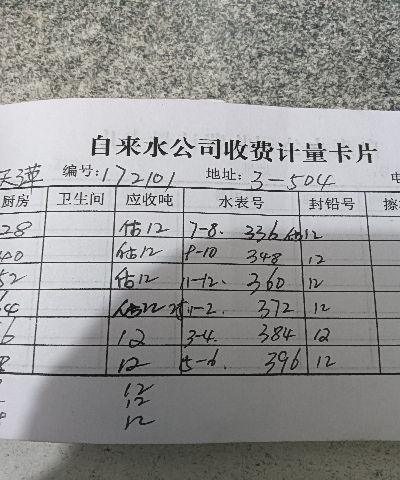 自来水公司收费计量卡片
编号:172101 地址:3-504
厨房 卫生间 应收吨 水表号 封铅号
28 估12 7-8. 336 估12
40 估12 9-10 348 12
52 估12 11-12. 360 12
64 估12 1-2. 372 12
12 3-4. 384 12
12 5-6. 396 12
12
12
12